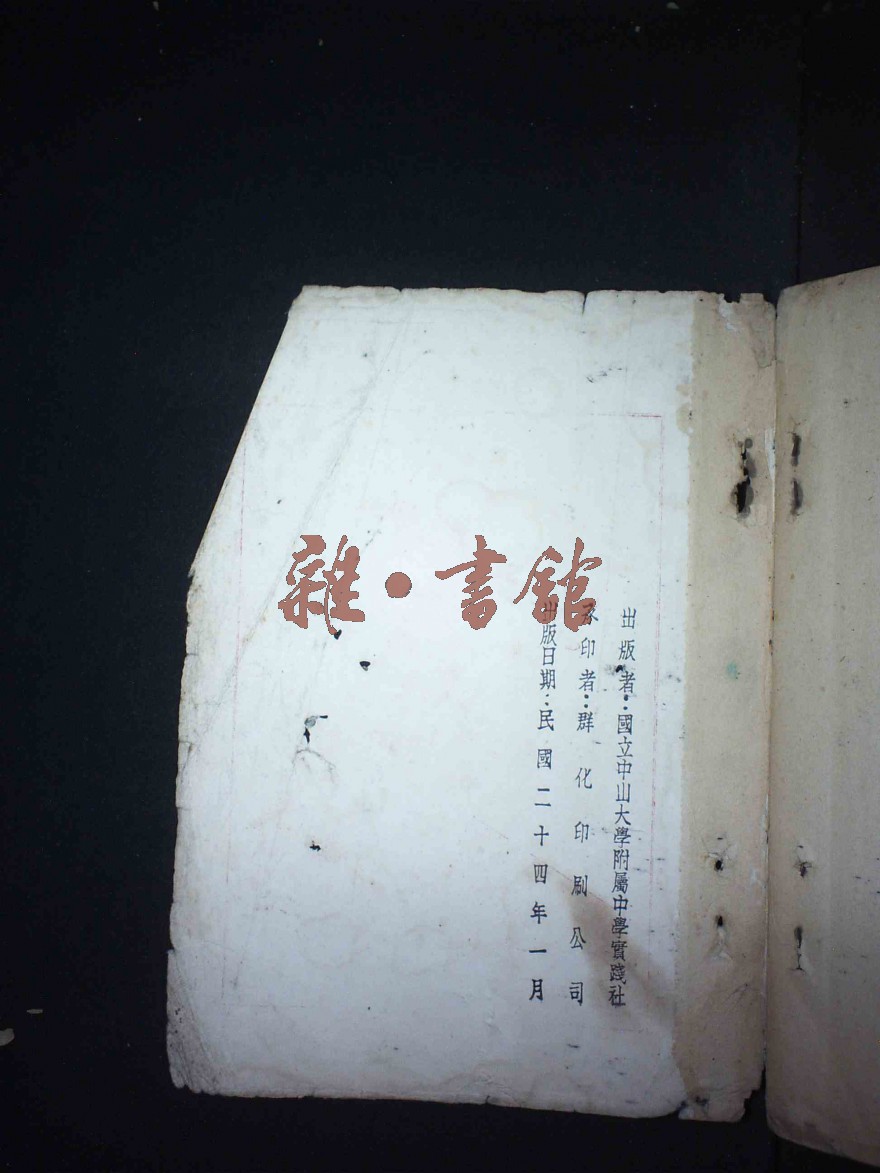 出版者：國立中山大學附屬中學實踐社
承印者：群化印刷公司
出版日期：民國二十四年一月
雜·書館